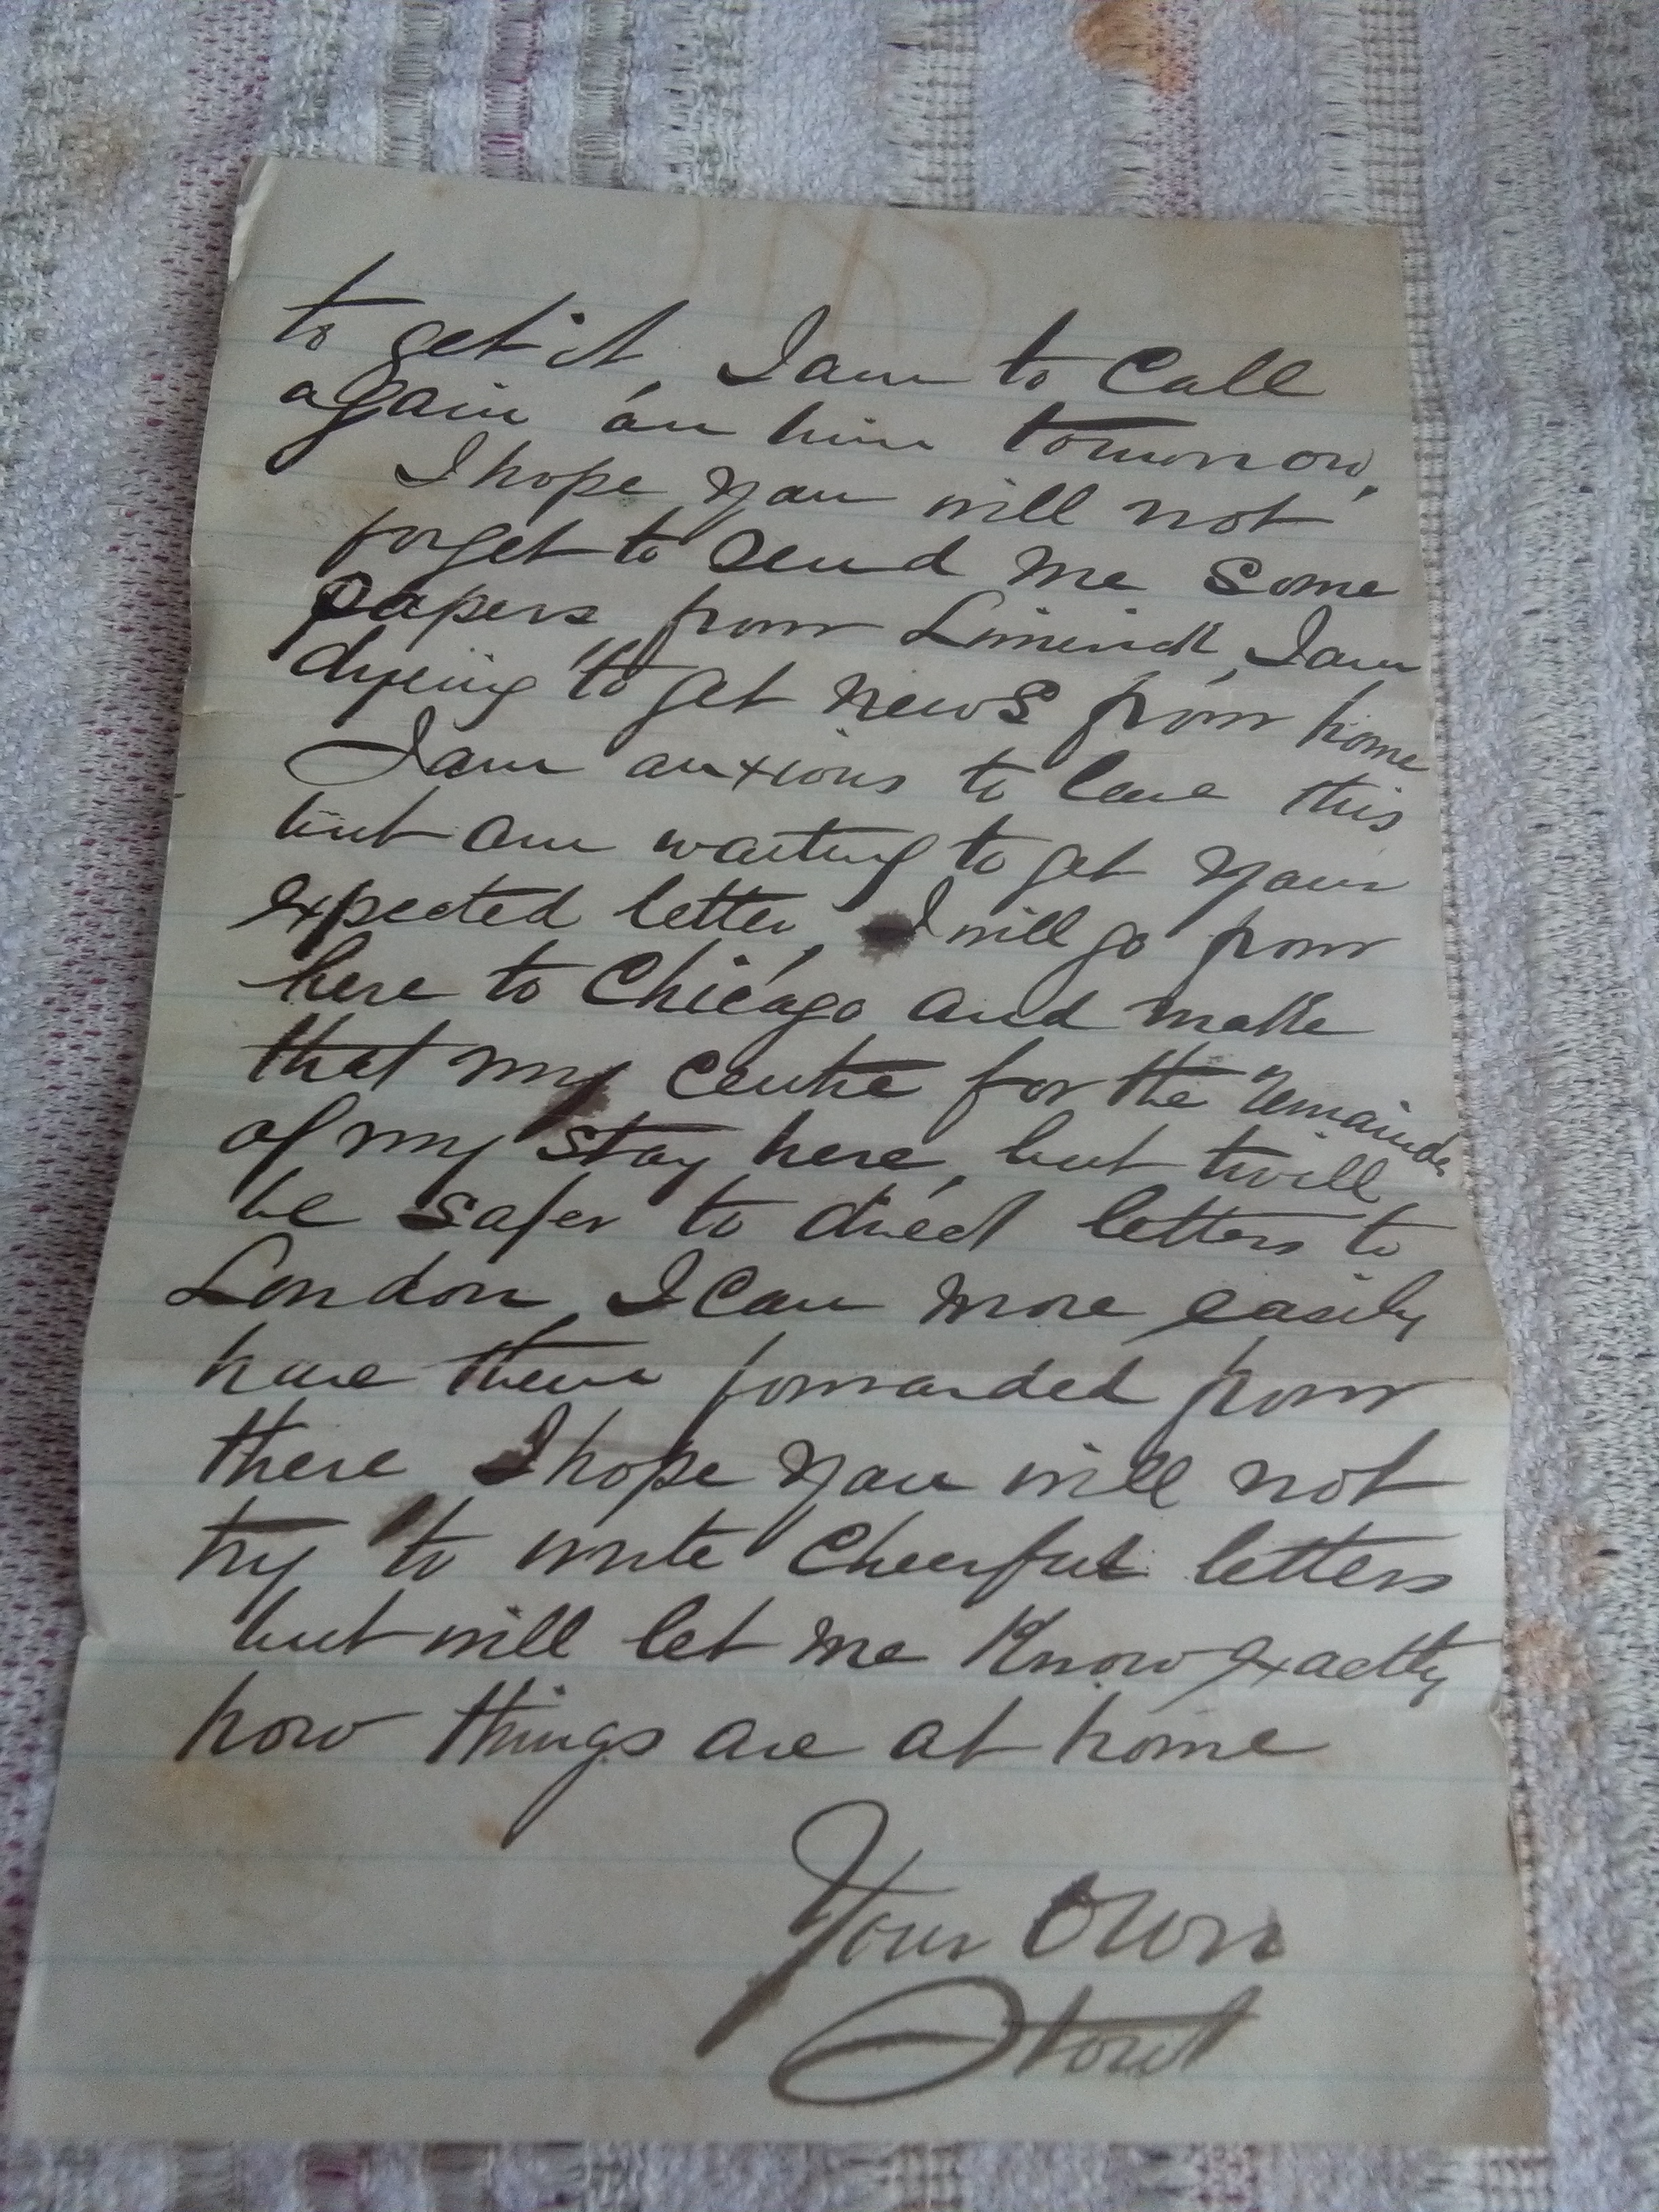 to get it I am to Call
again on him tomorrow,
I hope you will not
forget to send me some
papers from Limerick, I am
dyeing to get news from home
I am anxious to leave this
but am waiting to get your
expected letter, I will go from
here to Chicago and make
that my centre for the remainder
of my stay here, but twill
be safer to direct letters to
London, I can more easily
have them forwarded from
there I hope you will not
try to write cheerful letters
but will let me know exactly
how things are at home
Your Own
Stout